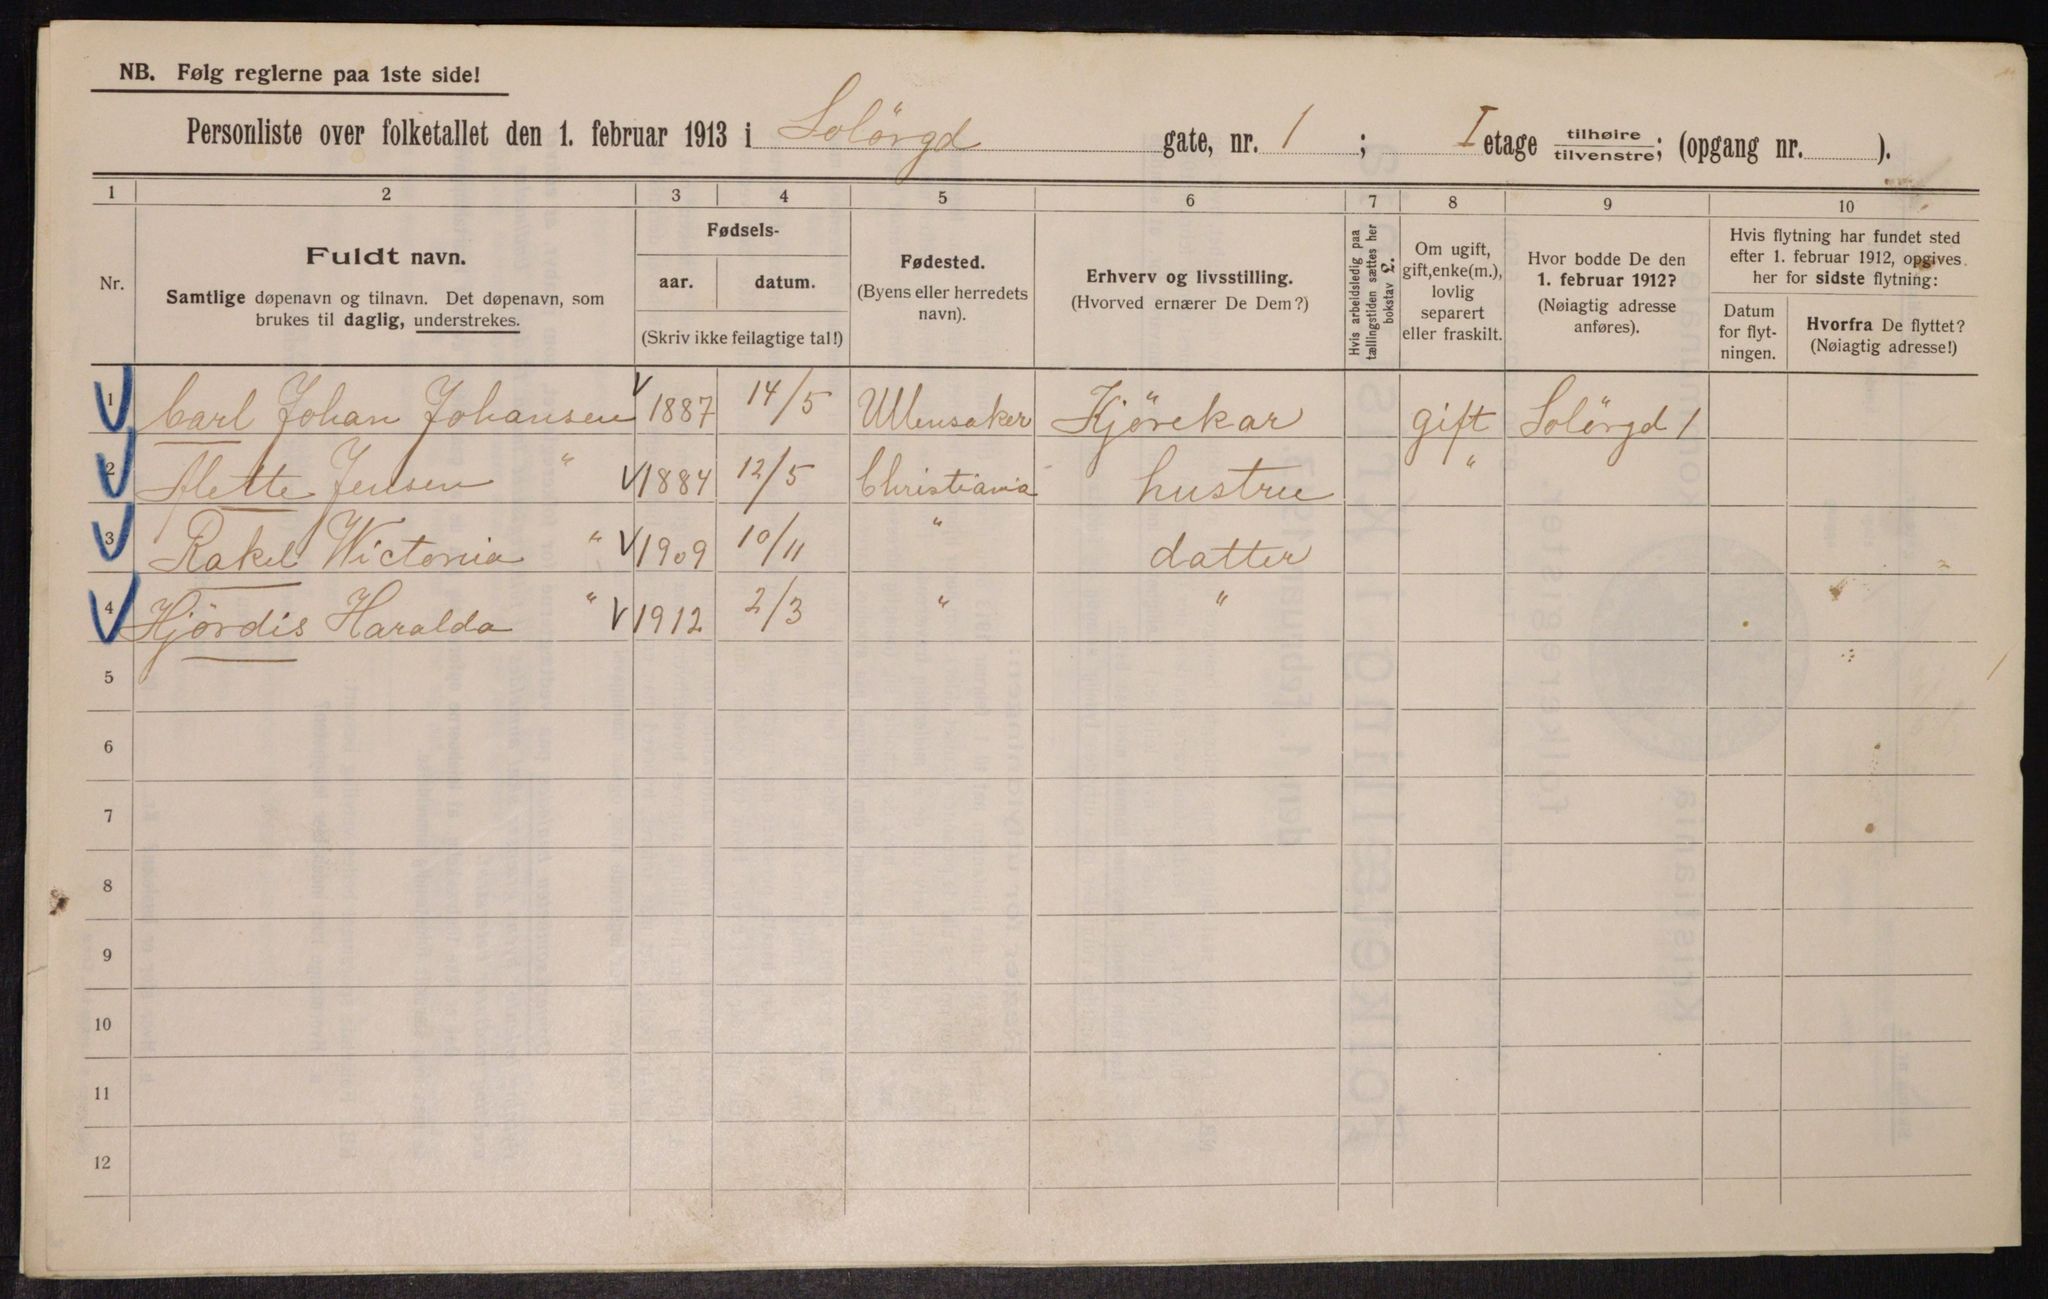 NB. Følg reglerne paa 1ste side!
Personliste over folketallet den 1. februar 1913 i Solörgd gate, nr. 1 ; I etage tilhøire/tilvenstre; (opgang nr. ).
1 2 3 4 5 6 7 8 9 10
Nr.
Fuldt navn.
Samtlige døpenavn og tilnavn. Det døpenavn, som
brukes til daglig, understrekes.
Fødsels-
aar. datum.
(Skriv ikke feilagtige tal!)
Fødested.
(Byens eller herredets
navn).
Erhverv og livsstilling.
(Hvorved ernærer De Dem?)
Hvis arbeidsledig paa
tællingstiden sættes her
bokstav l.
Om ugift,
gift, enke(m.),
lovlig
separert
eller fraskilt.
Hvor bodde De den
1. februar 1912?
(Nøiagtig adresse
anføres).
Hvis flytning har fundet sted
efter 1. februar 1912, opgives
her for sidste flytning:
Datum
for flyt-
ningen.
Hvorfra De flyttet?
(Nøiagtig adresse!)
1 Carl Johan Johansen 1887 14/5 Ullensaker Kjörekar gift Solörgd 1
2 Mette Jensen " 1884 12/5 Christiania hustru "
3 Rakel Wictoria " 1909 10/11 " datter
4 Hjördis Haralda " 1912 2/3 " "
5
6
7
8
9
10
11
12